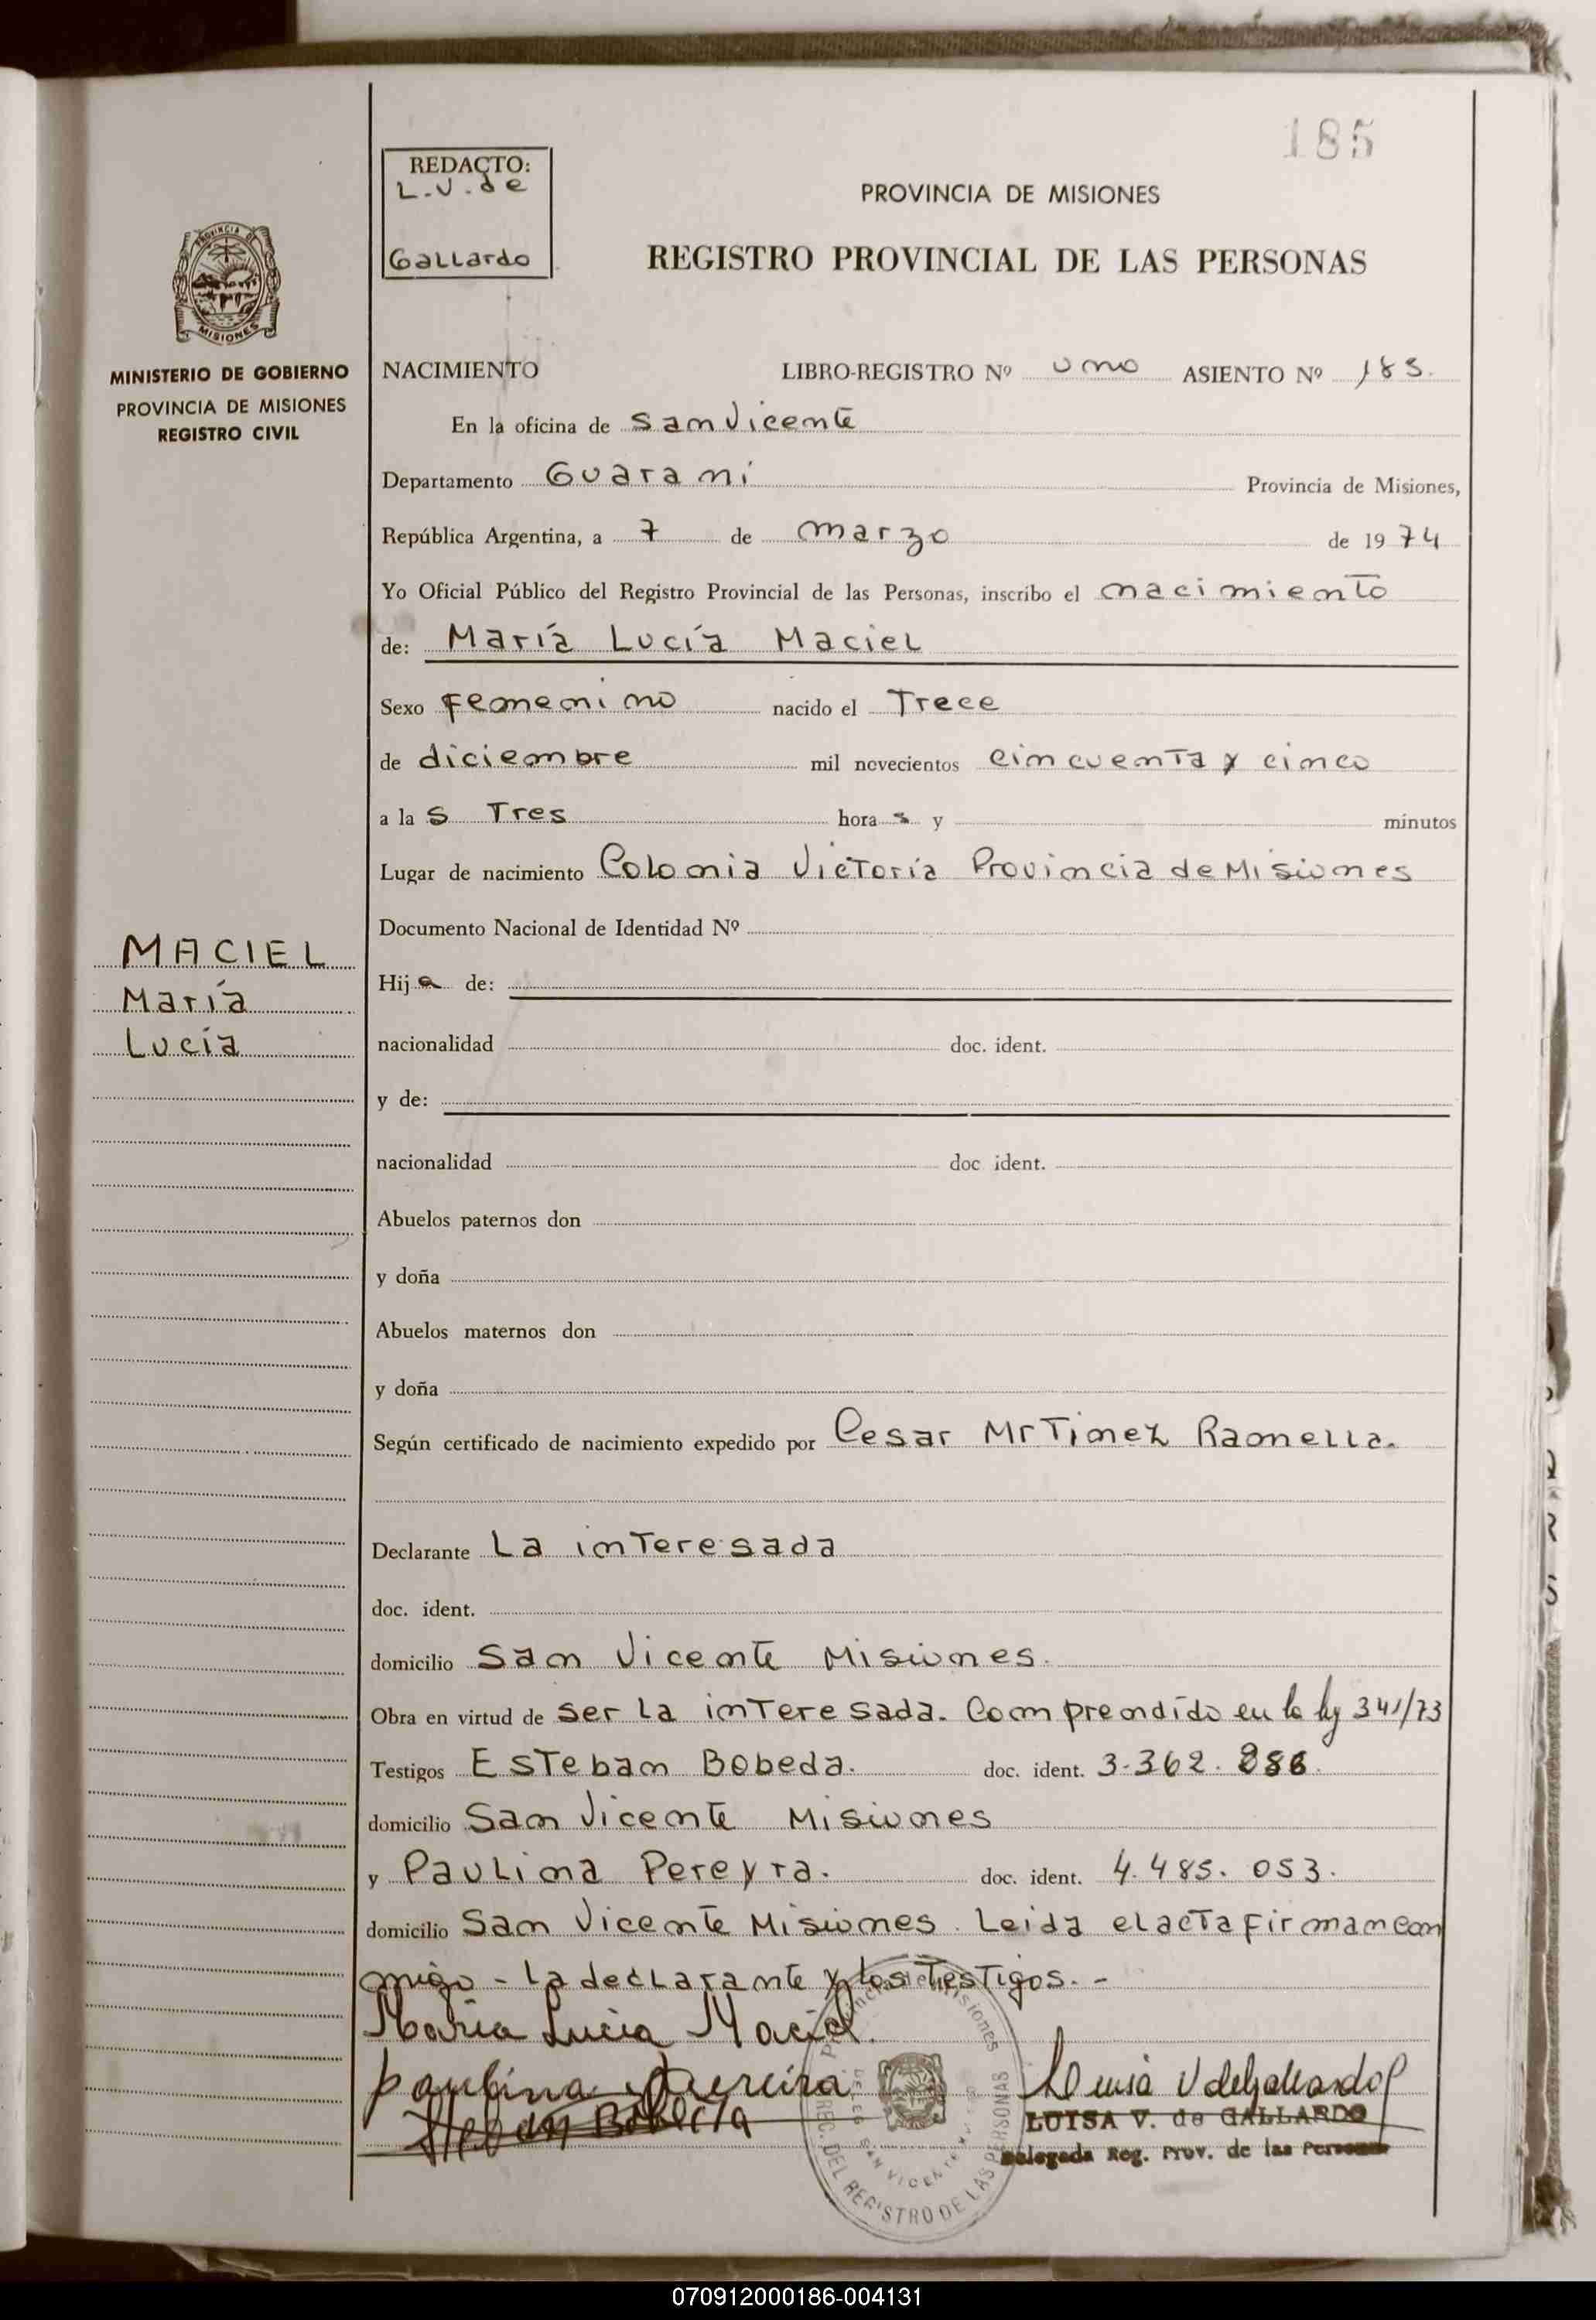 185
REDACTO:
L.V. de
Gallardo
PROVINCIA DE MISIONES
REGISTRO PROVINCIAL DE LAS PERSONAS
PROVINCIA DE
MISIONES
MINISTERIO DE GOBIERNO
PROVINCIA DE MISIONES
REGISTRO CIVIL
NACIMIENTO LIBRO-REGISTRO Nº uno ASIENTO Nº 183.
En la oficina de San Vicente
Departamento Guaraní Provincia de Misiones,
República Argentina, a 7 de marzo de 1974
Yo Oficial Público del Registro Provincial de las Personas, inscribo el nacimiento
de: María Lucía Maciel
Sexo femenino nacido el Trece
de diciembre mil novecientos cincuenta y cinco
a las Tres horas y minutos
Lugar de nacimiento Colonia Victoria Provincia de Misiones
Documento Nacional de Identidad Nº
MACIEL
María
Lucía
Hija de:
nacionalidad doc. ident.
y de:
nacionalidad doc ident.
Abuelos paternos don
y doña
Abuelos maternos don
y doña
Según certificado de nacimiento expedido por Cesar MrTinez Ramella.
Declarante La interesada
doc. ident.
domicilio San Vicente Misiones.
Obra en virtud de ser la interesada. Comprendído en la ley 341/73
Testigos Esteban Bobeda. doc. ident. 3.362.886.
domicilio San Vicente Misiones
y Paulina Pereyra. doc. ident. 4.485.053.
domicilio San Vicente Misiones. Leida el acta firman con
migo - la declarante y los testigos. -
Maria Lucia Maciel.
paulina pereira
Esteban Bobeda
Luisa V de Gallardo
LUISA V. de GALLARDO
Delegada Reg. Prov. de las Personas
Provincia de Misiones
SAN VICENTE
REC. DEL REGISTRO DE LAS PERSONAS
070912000186-004131